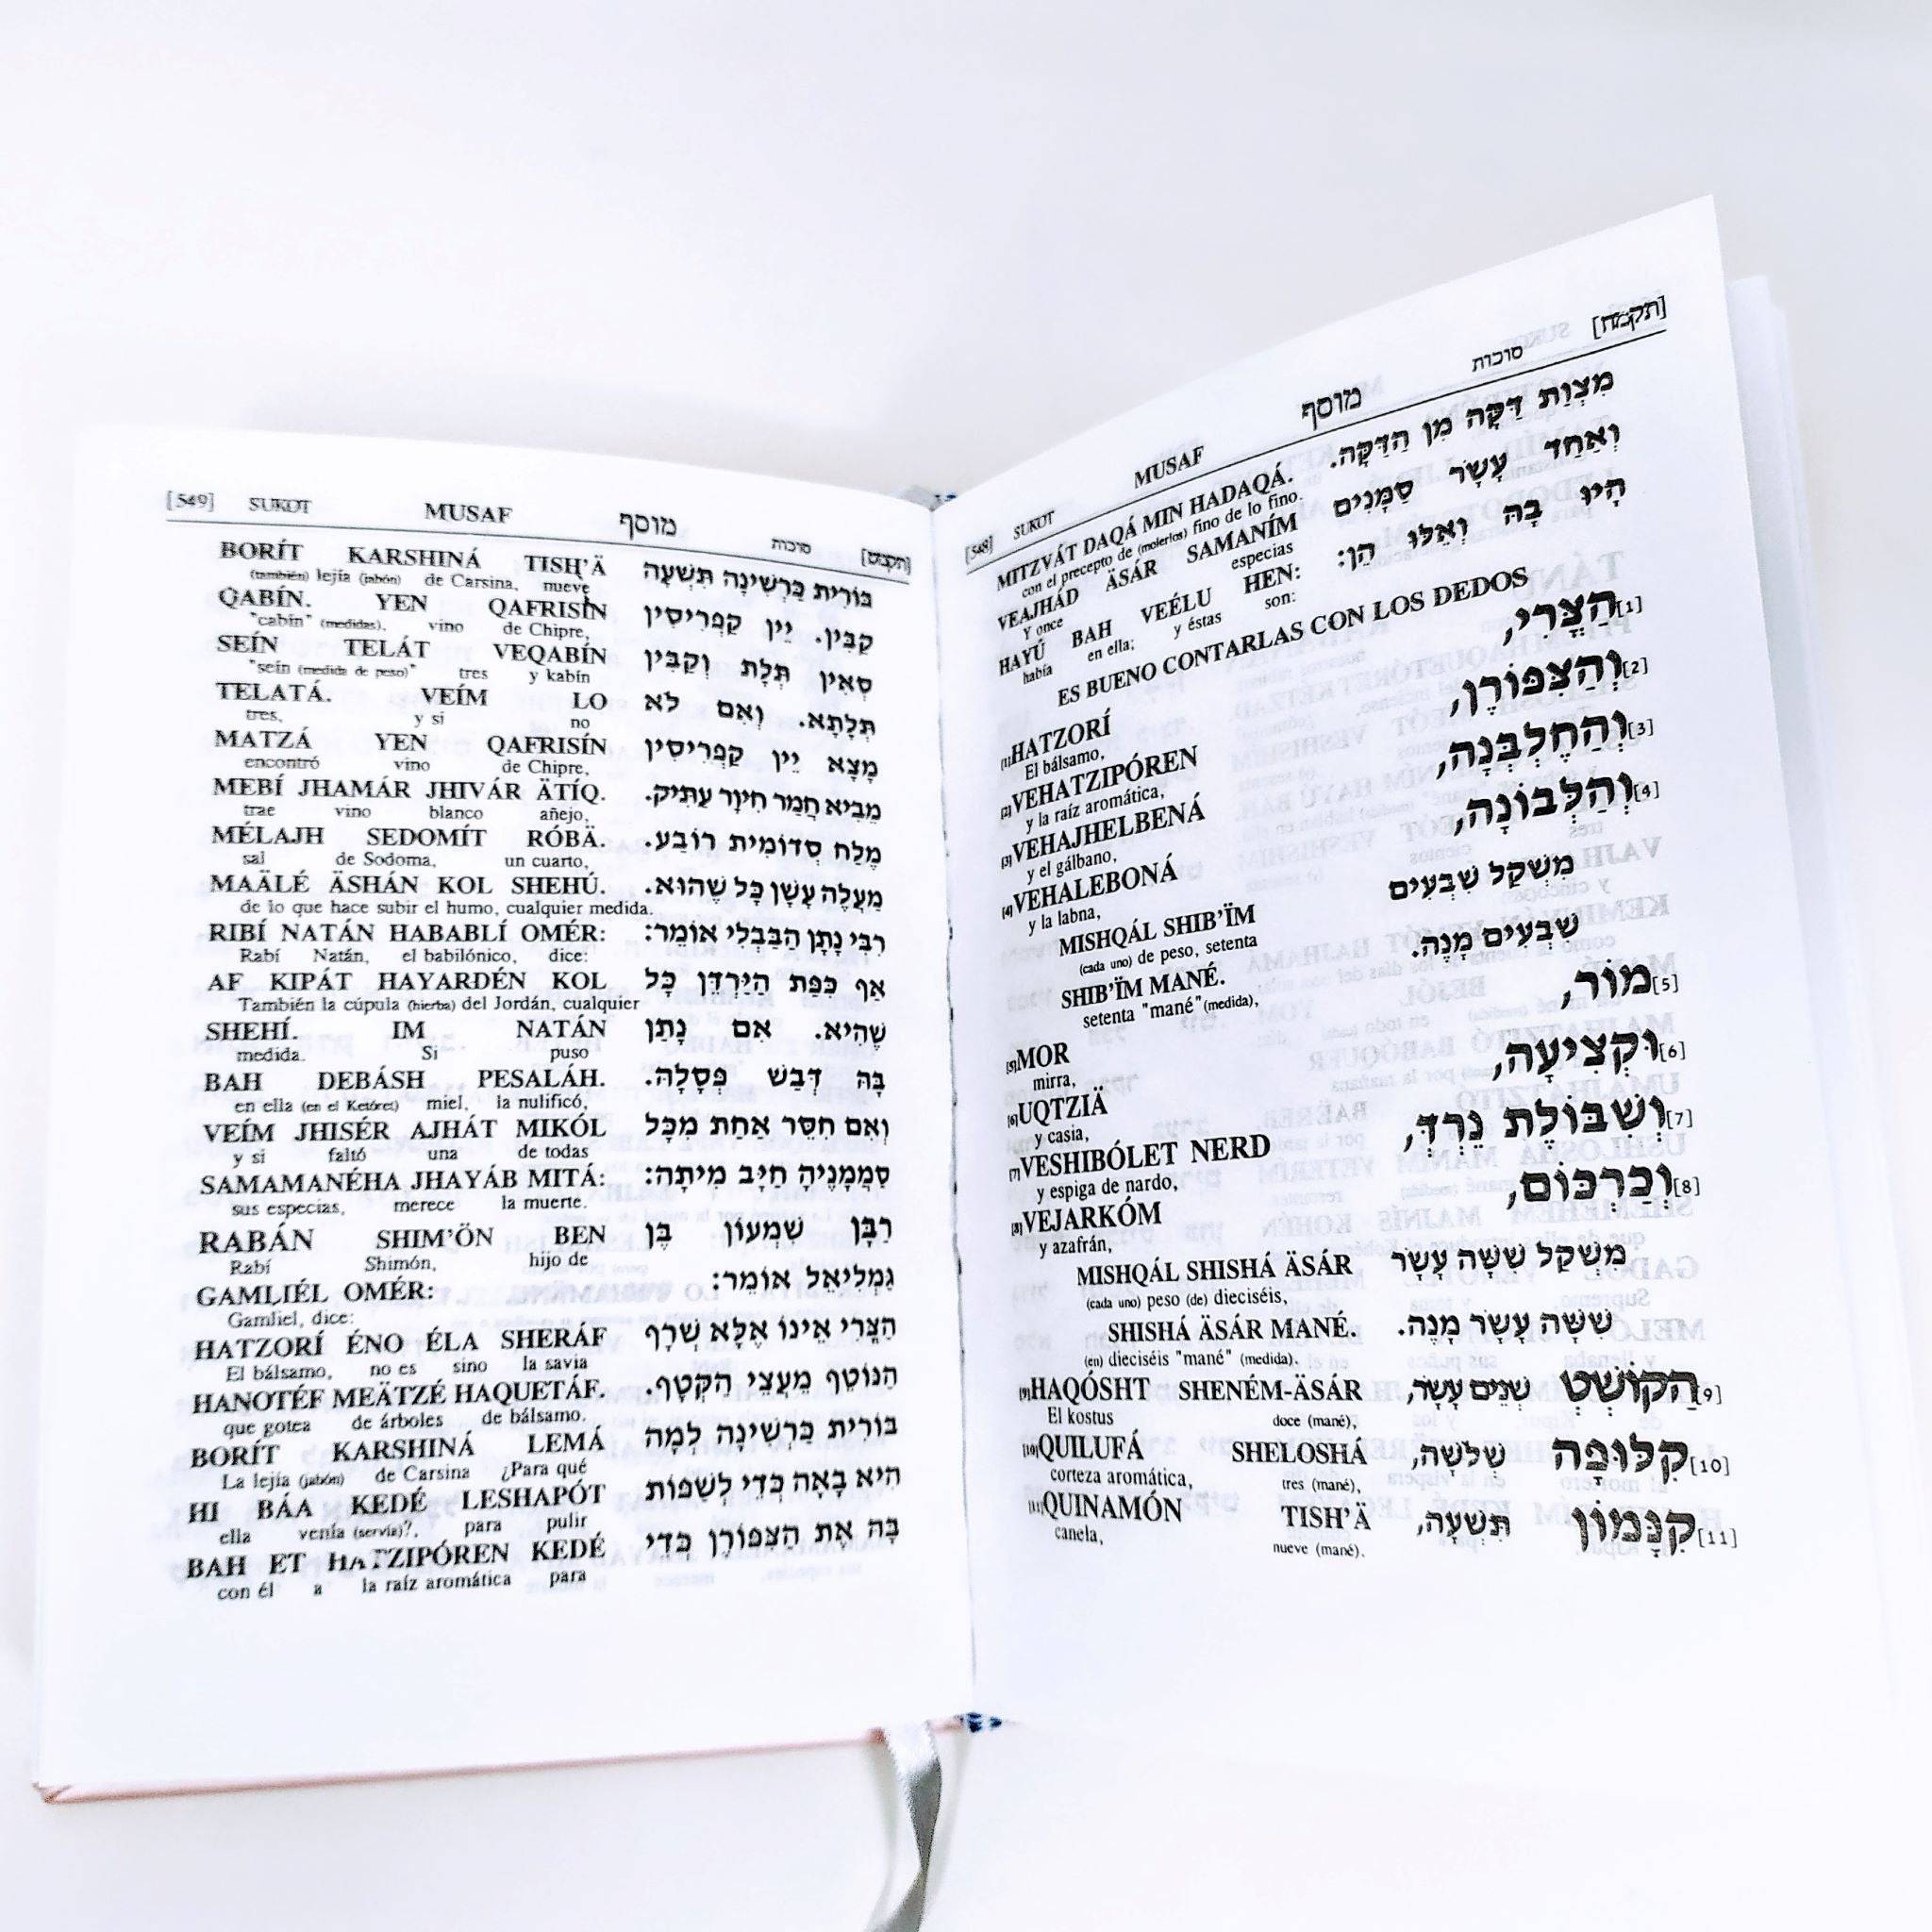 [548] SUKOT MUSAF מוסף סוכות [תקמח]
MITZVÁT DAQÁ MIN HADAQÁ. מִצְוַת דַּקָּה מִן הַדַּקָּה.
con el precepto de (molerlos) fino de lo fino.
VEAJHÁD ÄSÁR SAMANÍM וְאַחַד עָשָׂר סַמָּנִים
Y once especias
HAYÚ BAH VEÉLU HEN: הָיוּ בָהּ וְאֵלּוּ הֵן:
había en ella; y éstas son:
ES BUENO CONTARLAS CON LOS DEDOS
[1]HATZORÍ הַצֳּרִי,[1]
El bálsamo,
[2]VEHATZIPÓREN וְהַצִּפּוֹרֶן,[2]
y la raíz aromática,
[3]VEHAJHELBENÁ וְהַחֶלְבְּנָה,[3]
y el gálbano,
[4]VEHALEBONÁ וְהַלְּבוֹנָה,[4]
y la labna,
MISHQÁL SHIB'ÏM מִשְׁקַל שִׁבְעִים
(cada uno) de peso, setenta
SHIB'ÏM MANÉ. שִׁבְעִים מָנֶה.
setenta "mané" (medida),
[5]MOR מוֹר,[5]
mirra,
[6]UQTZIÄ וּקְצִיעָה,[6]
y casia,
[7]VESHIBÓLET NERD וְשִׁבּוֹלֶת נֵרְדְּ,[7]
y espiga de nardo,
[8]VEJARKÓM וְכַרְכּוֹם,[8]
y azafrán,
MISHQÁL SHISHÁ ÄSÁR מִשְׁקַל שִׁשָּׁה עָשָׂר
(cada uno) peso (de) dieciséis,
SHISHÁ ÄSÁR MANÉ. שִׁשָּׁה עָשָׂר מָנֶה.
(en) dieciséis "mané" (medida).
[9]HAQÓSHT SHENÉM-ÄSÁR הַקּוֹשְׁטְ שְׁנֵים עָשָׂר,[9]
El kostus doce (mané),
[10]QUILUFÁ SHELOSHÁ קִלּוּפָה שְׁלֹשָׁה,[10]
corteza aromática, tres (mané),
[11]QUINAMÓN TISH'Ä קִנָּמוֹן תִּשְׁעָה,[11]
canela, nueve (mané).
[549] SUKOT MUSAF מוסף סוכות [תקמט]
BORÍT KARSHINÁ TISH'Ä בּוֹרִית כַּרְשִׁינָה תִּשְׁעָה
(también) lejía (jabón) de Carsina, nueve
QABÍN. YEN QAFRISÍN קַבִּין. יֵין קַפְרִיסִין
"cabín" (medidas), vino de Chipre,
SEÍN TELÁT VEQABÍN סְאִין תְּלָת וְקַבִּין
"seín (medida de peso)" tres y kabín
TELATÁ. VEÍM LO תְּלָתָא. וְאִם לֹא
tres, y si no
MATZÁ YEN QAFRISÍN מָצָא יֵין קַפְרִיסִין
encontró vino de Chipre,
MEBÍ JHAMÁR JHIVÁR ÄTÍQ. מֵבִיא חֲמַר חִיוָר עַתִּיק.
trae vino blanco añejo,
MÉLAJH SEDOMÍT RÓBÄ. מֶלַח סְדוֹמִית רוֹבַע.
sal de Sodoma, un cuarto,
MAÄLÉ ÄSHÁN KOL SHEHÚ. מַעֲלֶה עָשָׁן כָּל שֶׁהוּא.
de lo que hace subir el humo, cualquier medida.
RIBÍ NATÁN HABABLÍ OMÉR: רִבִּי נָתָן הַבַּבְלִי אוֹמֵר:
Rabí Natán, el babilónico, dice:
AF KIPÁT HAYARDÉN KOL אַף כִּפַּת הַיַּרְדֵּן כָּל
También la cúpula (hierba) del Jordán, cualquier
SHEHÍ. IM NATÁN שֶׁהִיא. אִם נָתַן
medida. Si puso
BAH DEBÁSH PESALÁH. בָּהּ דְּבַשׁ פְּסָלָהּ.
en ella (en el Ketóret) miel, la nulificó,
VEÍM JHISÉR AJHÁT MIKÓL וְאִם חִסֵּר אַחַת מִכָּל
y si faltó una de todas
SAMAMANÉHA JHAYÁB MITÁ: סַמֲמָנֶיהָ חַיָּב מִיתָה:
sus especias, merece la muerte.
RABÁN SHIM'ÖN BEN רַבָּן שִׁמְעוֹן בֶּן
Rabí Shimón, hijo de
GAMLIÉL OMÉR: גַּמְלִיאֵל אוֹמֵר:
Gamliel, dice:
HATZORÍ ÉNO ÉLA SHERÁF הַצֳּרִי אֵינוֹ אֶלָּא שְׂרָף
El bálsamo, no es sino la savia
HANOTÉF MEÄTZÉ HAQUETÁF. הַנּוֹטֵף מֵעֲצֵי הַקְּטָף.
que gotea de árboles de bálsamo.
BORÍT KARSHINÁ LEMÁ בּוֹרִית כַּרְשִׁינָה לְמָה
La lejía (jabón) de Carsina ¿Para qué
HI BÁA KEDÉ LESHAPÓT הִיא בָאָה כְּדֵי לְשַׁפּוֹת
ella venía (servía)?, para pulir
BAH ET HATZIPÓREN KEDÉ בָּהּ אֶת הַצִּפּוֹרֶן כְּדֵי
con él a la raíz aromática para